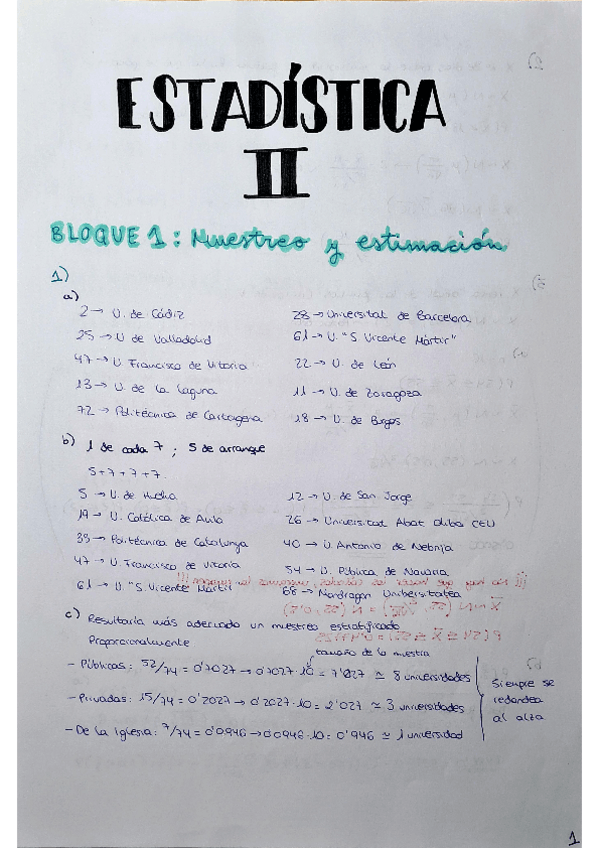 ESTADÍSTICA
II
BLOQUE 1: Muestreo y estimación
1)
a)
2 → U. de Cádiz
25 → U de Valladolid
47 → U. Francisco de Vitoria
13 → U. de la Laguna
72 → Politécnica de Cartagena
28 → Universitat de Barcelona
61 → U. "S Vicente Mártir"
22 → U. de León
11 → U. de Zaragoza
18 → U. de Burgos
b) 1 de cada 7 ; 5 de arranque
5+7+7+7...
5 → U. de Huelva
19 → U. Católica de Avila
33 → Politécnica de Catalunya
47 → U. Francisco de Vitoria
61 → U. "S. Vicente Mártir"
12 → U. de San Jorge
26 → Universitat Abat Oliba CEU
40 → U. Antonio de Nebrija
54 → U. Pública de Navarra
68 → Mondragon Unibersitatea
c) Resultaría más adecuado un muestreo estratificado
Proporcionalmente
tamaño de la muestra
- Públicas: 52/74 = 0'7027 → 0'7027·10 = 7'027 ≃ 8 universidades
- Privadas: 15/74 = 0'2027 → 0'2027·10 = 2'027 ≃ 3 universidades
- De la Iglesia: 7/74 = 0'0946 → 0'0946·10 = 0'946 ≃ 1 universidad
Siempre se
redondea
al alza
1